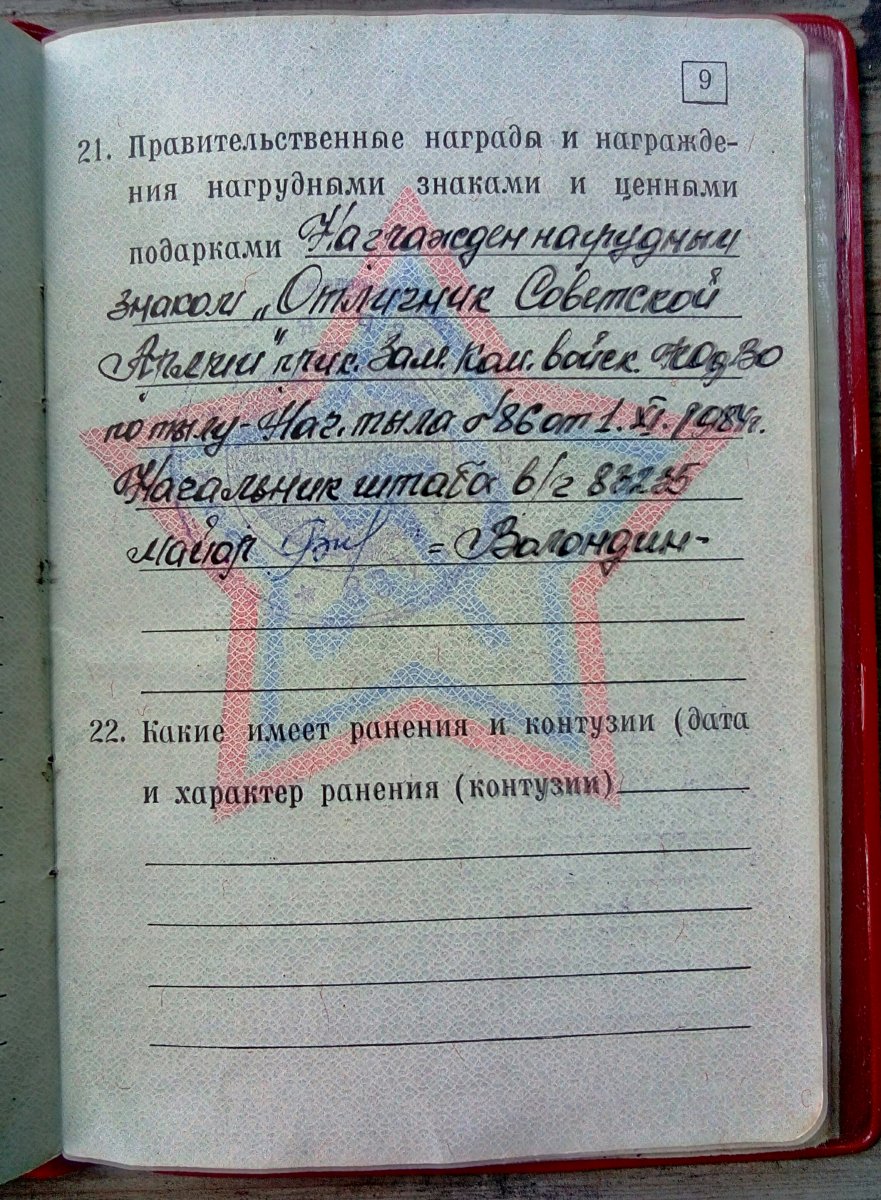 9
21. Правительственные награды и награжде-
ния нагрудными знаками и ценными
подарками Награжден нагрудным
знаком „Отличник Советской
Армии" прик. Зам. Ком. войск. КОдВО
по тылу - Нач. тыла №86 от 1. XI. 1984г.
Начальник штаба в/г 83235
майор = Волондин-
22. Какие имеет ранения и контузии (дата
и характер ранения (контузии)